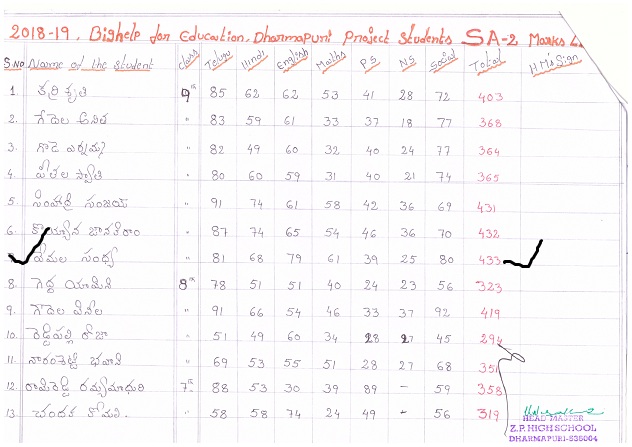 2018-19, Bighelp for Education, Dharmapuri Project Students SA-2 Marks
S.No Name of the Student class Telugu Hindi English Maths P.S N.S Social Total H.M's Sign
1. తర్ర కృతి 9th 85 62 62 53 41 28 72 403
2. గేదెల అనిత " 83 59 61 33 37 18 77 368
3. గొడె ఎర్నమ్మ " 82 49 60 32 40 24 77 364
4. పీతల స్వాతి " 80 60 59 31 40 21 74 365
5. సింహాద్రి సంజయ్ " 91 74 61 58 42 36 69 431
6. కొయ్యాన జానకిరాం " 87 74 65 54 46 36 70 432
వేమల సంధ్య " 81 68 79 61 39 25 80 433
8. గెద్ద యామిని 8th 78 51 51 40 24 23 56 323
9. గొదెల వినీల " 91 66 54 46 33 37 92 419
10. రెడ్డిపల్లి రోజా " 51 49 60 34 28 27 45 294
11. నారంశెట్టి భవాని " 69 53 55 51 28 27 68 351
12. రామిరెడ్డి రమ్యమాధురి 7th 88 53 30 39 89 - 59 358
13. చందక కోమలి. " 58 58 74 24 49 - 56 319
HEAD MASTER
Z.P. HIGH SCHOOL
DHARMAPURI-535004